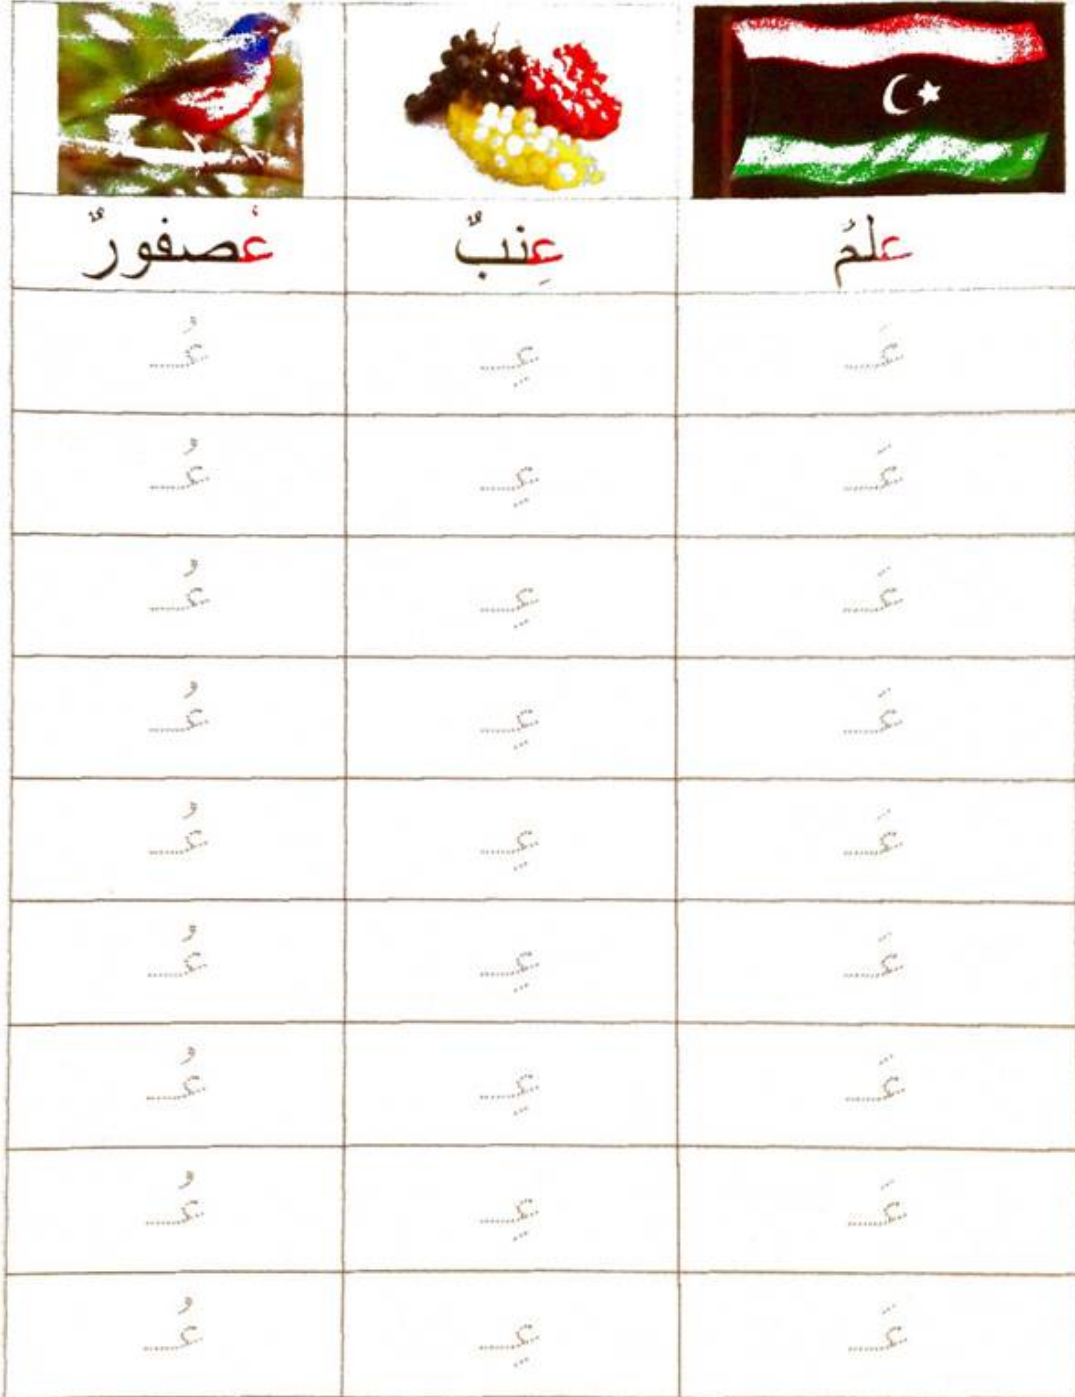 علمُ عِنبٌ عُصفورٌ
عَـ عِـ عُـ
عَـ عِـ عُـ
عَـ عِـ عُـ
عَـ عِـ عُـ
عَـ عِـ عُـ
عَـ عِـ عُـ
عَـ عِـ عُـ
عَـ عِـ عُـ
عَـ عِـ عُـ